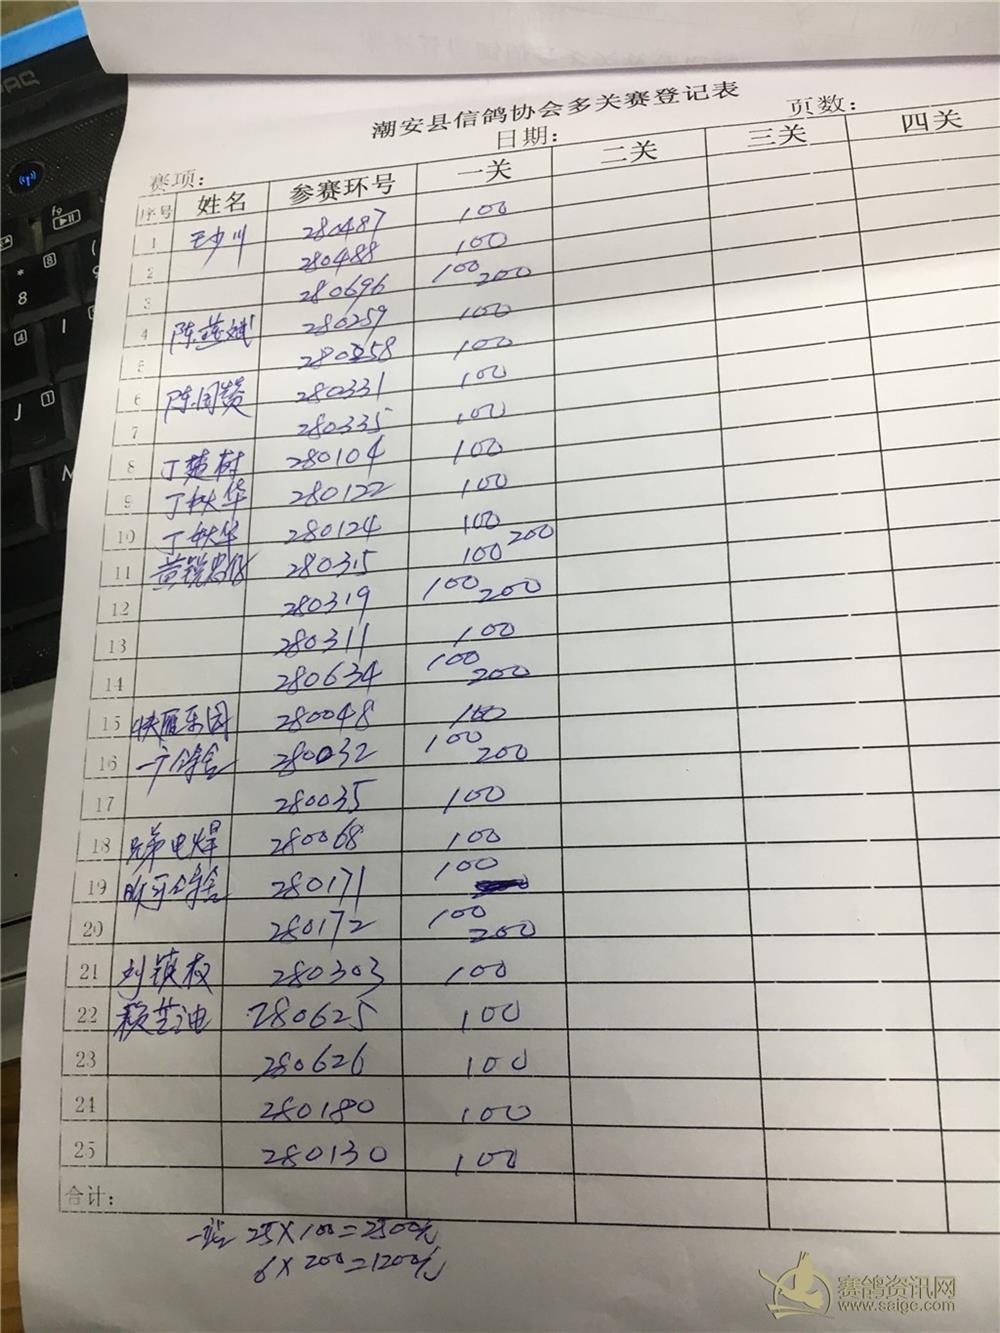 潮安县信鸽协会多关赛登记表
赛项: 日期: 页数:
序号 姓名 参赛环号 一关 二关 三关 四关
1 王少川 280487 100
2 280488 100
3 280696 100 200
4 280259 100
5 280258 100
6 280331 100
7 280335 100
8 丁楚树 280104 100
9 丁秋华 280122 100
10 丁秋华 280124 100
11 280315 100 200
12 280319 100 200
13 280311 100
14 280634 100 200
15 快雁乐园 280048 100
16 280032 100 200
17 280035 100
18 兄弟电焊 280068 100
19 鸽舍 280171 100
20 280172 100 200
21 刘镇权 280303 100
22 280625 100
23 280626 100
24 280180 100
25 280130 100
合计:
25×100=2500元
6×200=1200元
赛鸽资讯网
www.saige.com